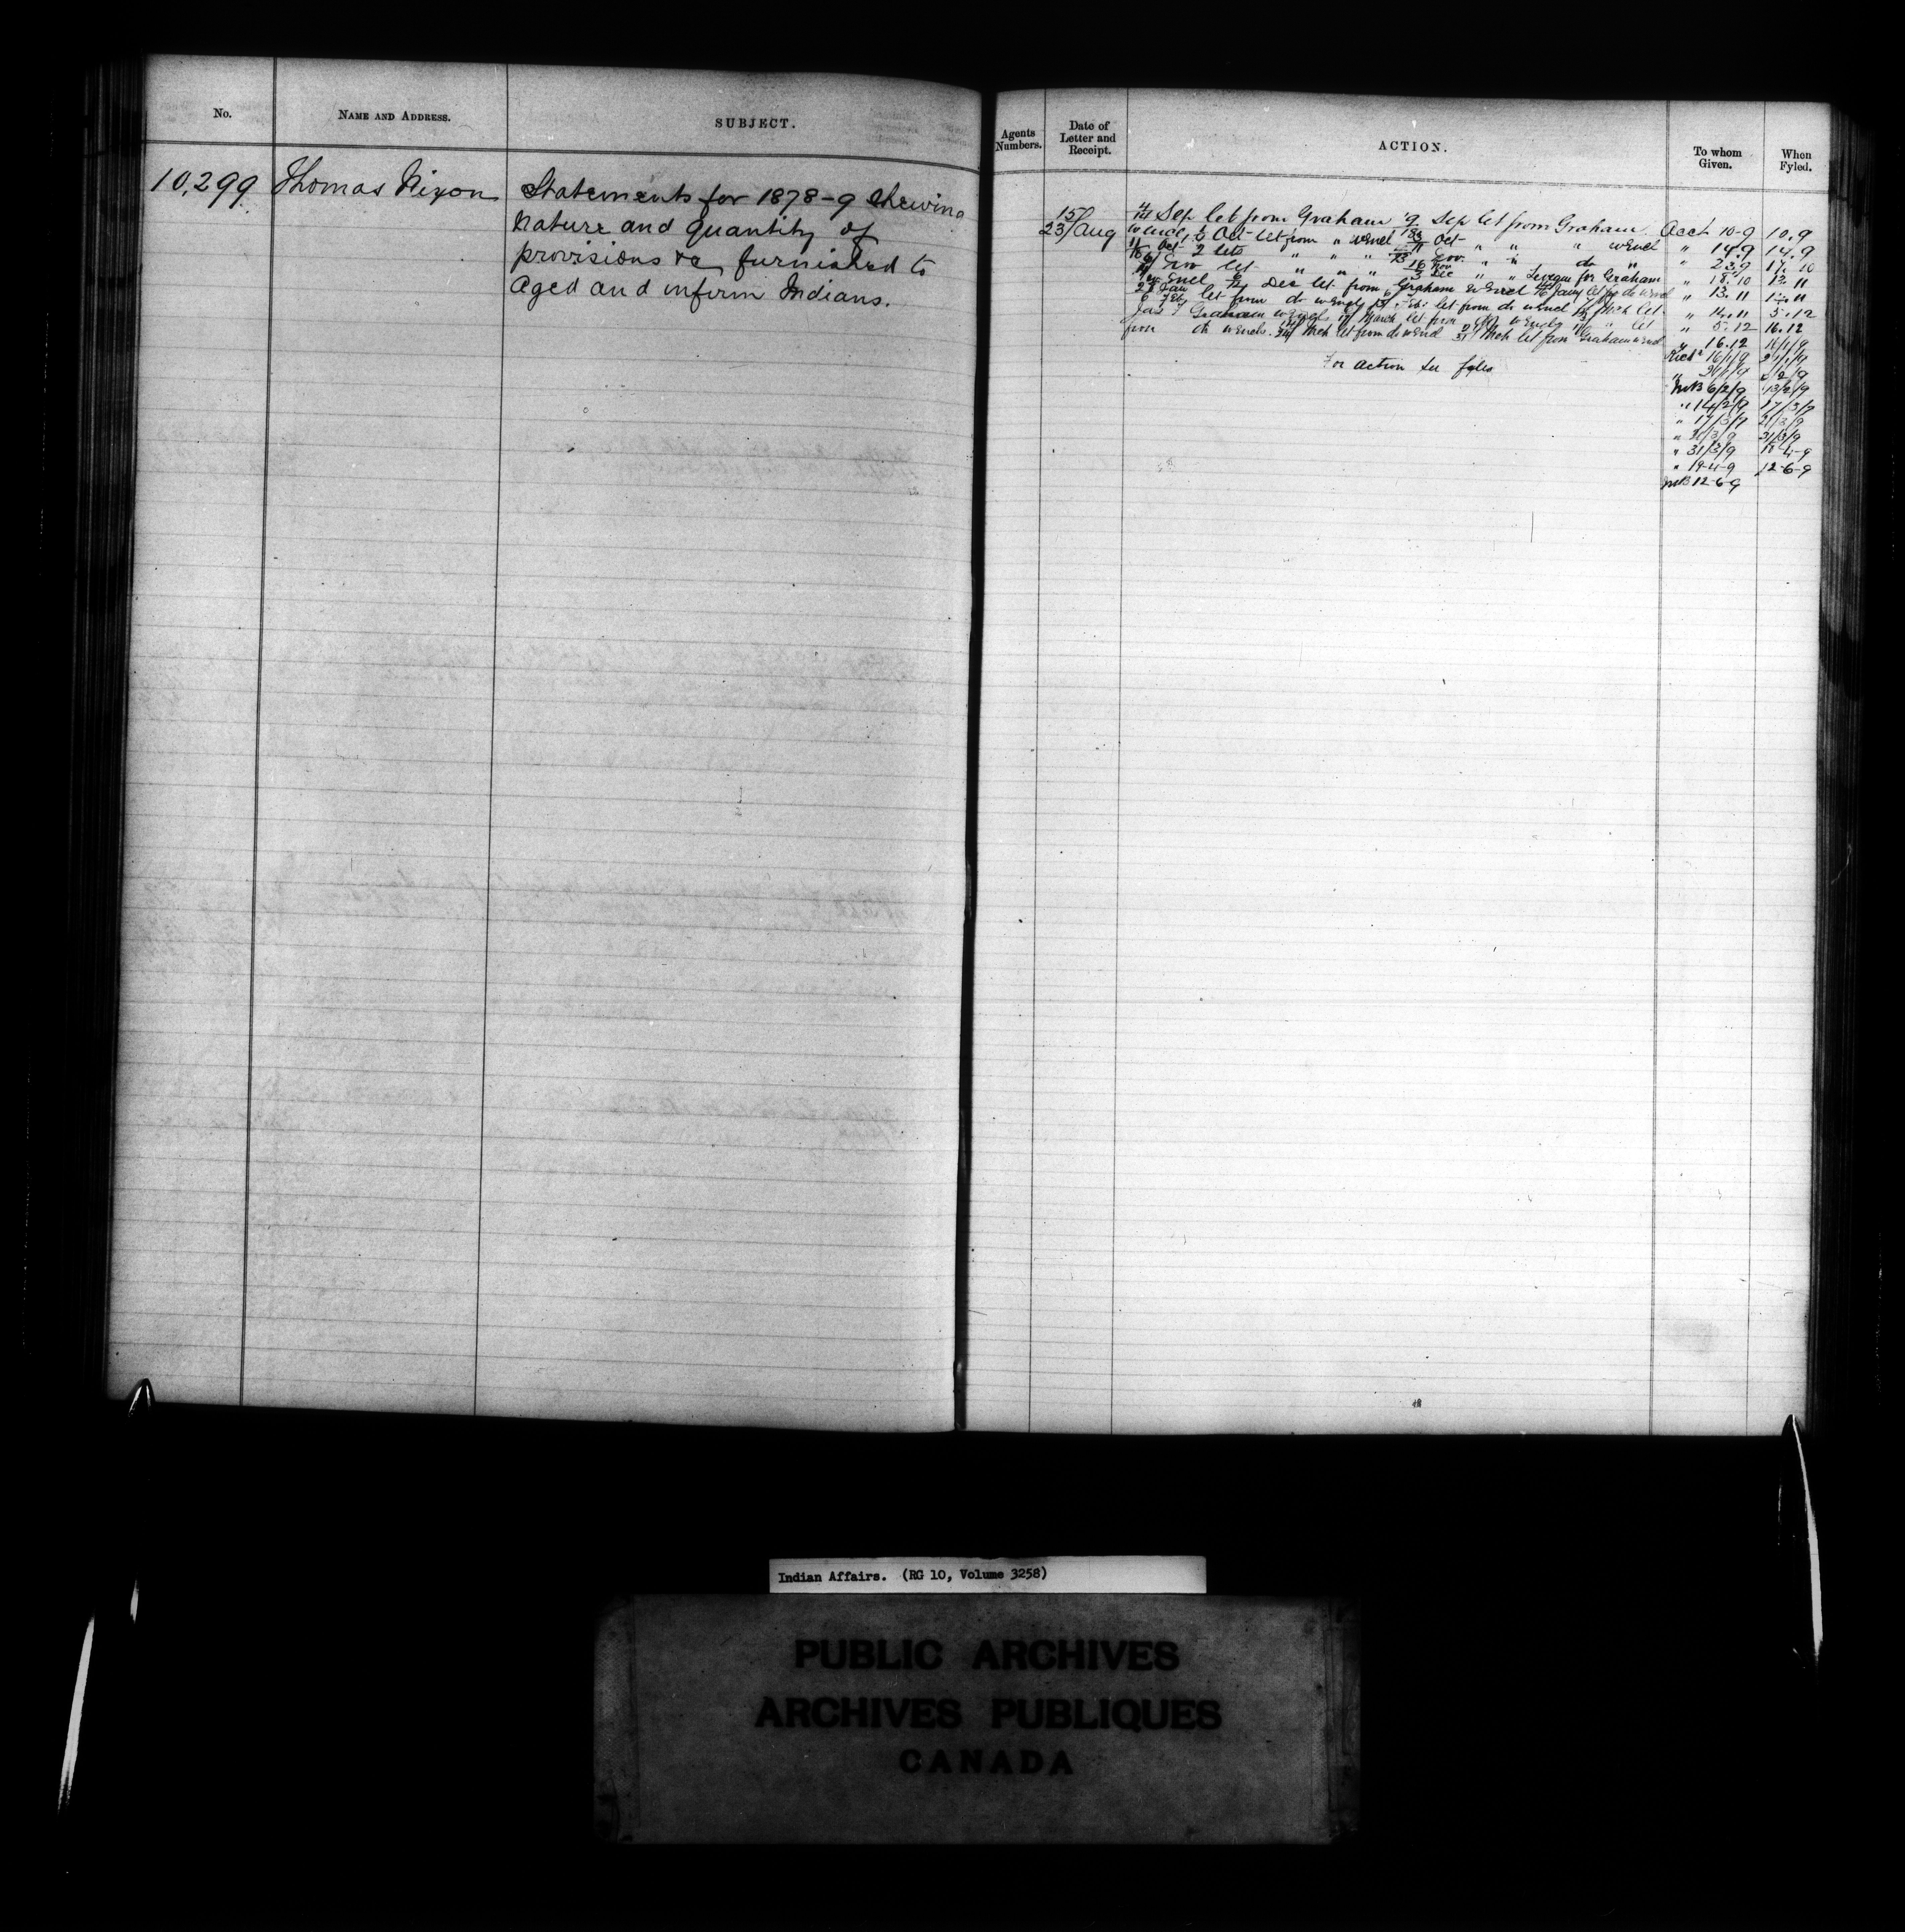 No.
NAME AND ADDRESS.
SUBJECT.
10,299
Thomas Nixon
Statements for 1878-9 shewing
nature and quantity of
provisions &c furnished to
Aged and infirm Indians.
Agents Numbers.
Date of Letter and Receipt.
ACTION.
To whom Given.
When Fyled.
15/23 Aug
Sep let from Graham 9 Sep let from Graham
Oct let from " w Encl Oct " " " w Encl
Oct 2 lets " " " Nov. " " do "
Nov let " " " Dec " " for Graham
w Encl Dec let from Graham w Encl Jany let do w Encl
Jan let from do w Encls Feb let from do w Encl Mch let
Graham w Encls March let from do w Encls " let
from do w Encls. Mch let from do w Encl Mch let from Graham w Encl
For action see fyles
Acct 10-9 10.9
" 14.9 14.9
" 23.9 17.10
" 18.10 12.11
" 13.11
" 14.11 5.12
" 5.12 16.12
" 16.12 16/1/9
16/1/9
MB 6/2/9 13/2/9
" 14/2/9 17/3/9
" 17/3/9 21/3/9
" 21/3/9 31/3/9
" 31/3/9 18-4-9
" 19-4-9 12-6-9
MB 12-6-9
Indian Affairs. (RG 10, Volume 3258)
PUBLIC ARCHIVES
ARCHIVES PUBLIQUES
CANADA